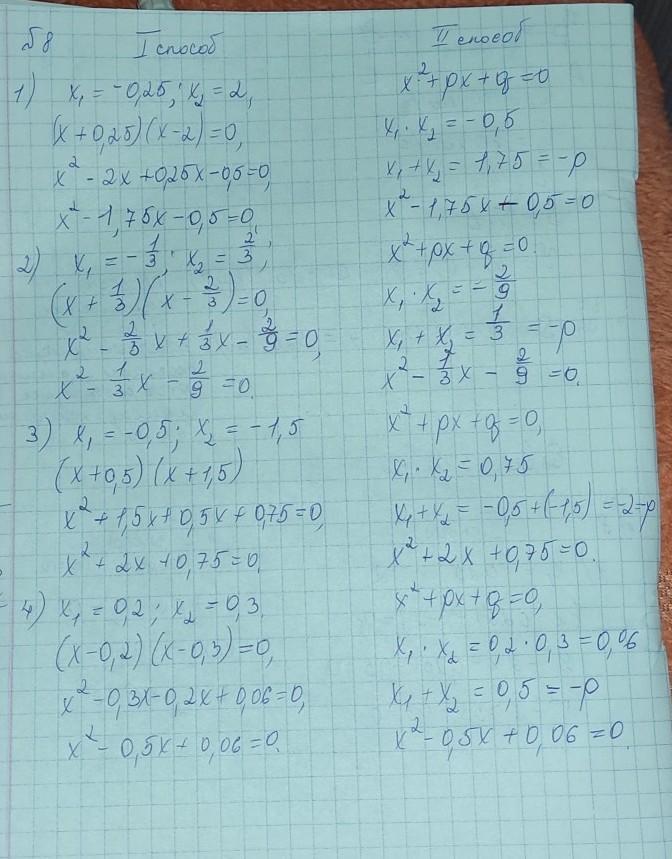 №8
I способ
1) x₁ = -0,25; x₂ = 2,
(x + 0,25)(x - 2) = 0,
x² - 2x + 0,25x - 0,5 = 0,
x² - 1,75x - 0,5 = 0
2) x₁ = -1/3; x₂ = 2/3;
(x + 1/3)(x - 2/3) = 0,
x² - 2/3 x + 1/3 x - 2/9 = 0,
x² - 1/3 x - 2/9 = 0.
3) x₁ = -0,5; x₂ = -1,5
(x + 0,5)(x + 1,5)
x² + 1,5x + 0,5x + 0,75 = 0,
x² + 2x + 0,75 = 0.
4) x₁ = 0,2; x₂ = 0,3.
(x - 0,2)(x - 0,3) = 0,
x² - 0,3x - 0,2x + 0,06 = 0,
x² - 0,5x + 0,06 = 0.
II способ
x² + px + q = 0
x₁ · x₂ = -0,5
x₁ + x₂ = 1,75 = -p
x² - 1,75x - 0,5 = 0
x² + px + q = 0.
x₁ · x₂ = -2/9
x₁ + x₂ = 1/3 = -p
x² - 1/3 x - 2/9 = 0.
x² + px + q = 0,
x₁ · x₂ = 0,75
x₁ + x₂ = -0,5 + (-1,5) = -2 = -p
x² + 2x + 0,75 = 0.
x² + px + q = 0,
x₁ · x₂ = 0,2 · 0,3 = 0,06
x₁ + x₂ = 0,5 = -p
x² - 0,5x + 0,06 = 0.